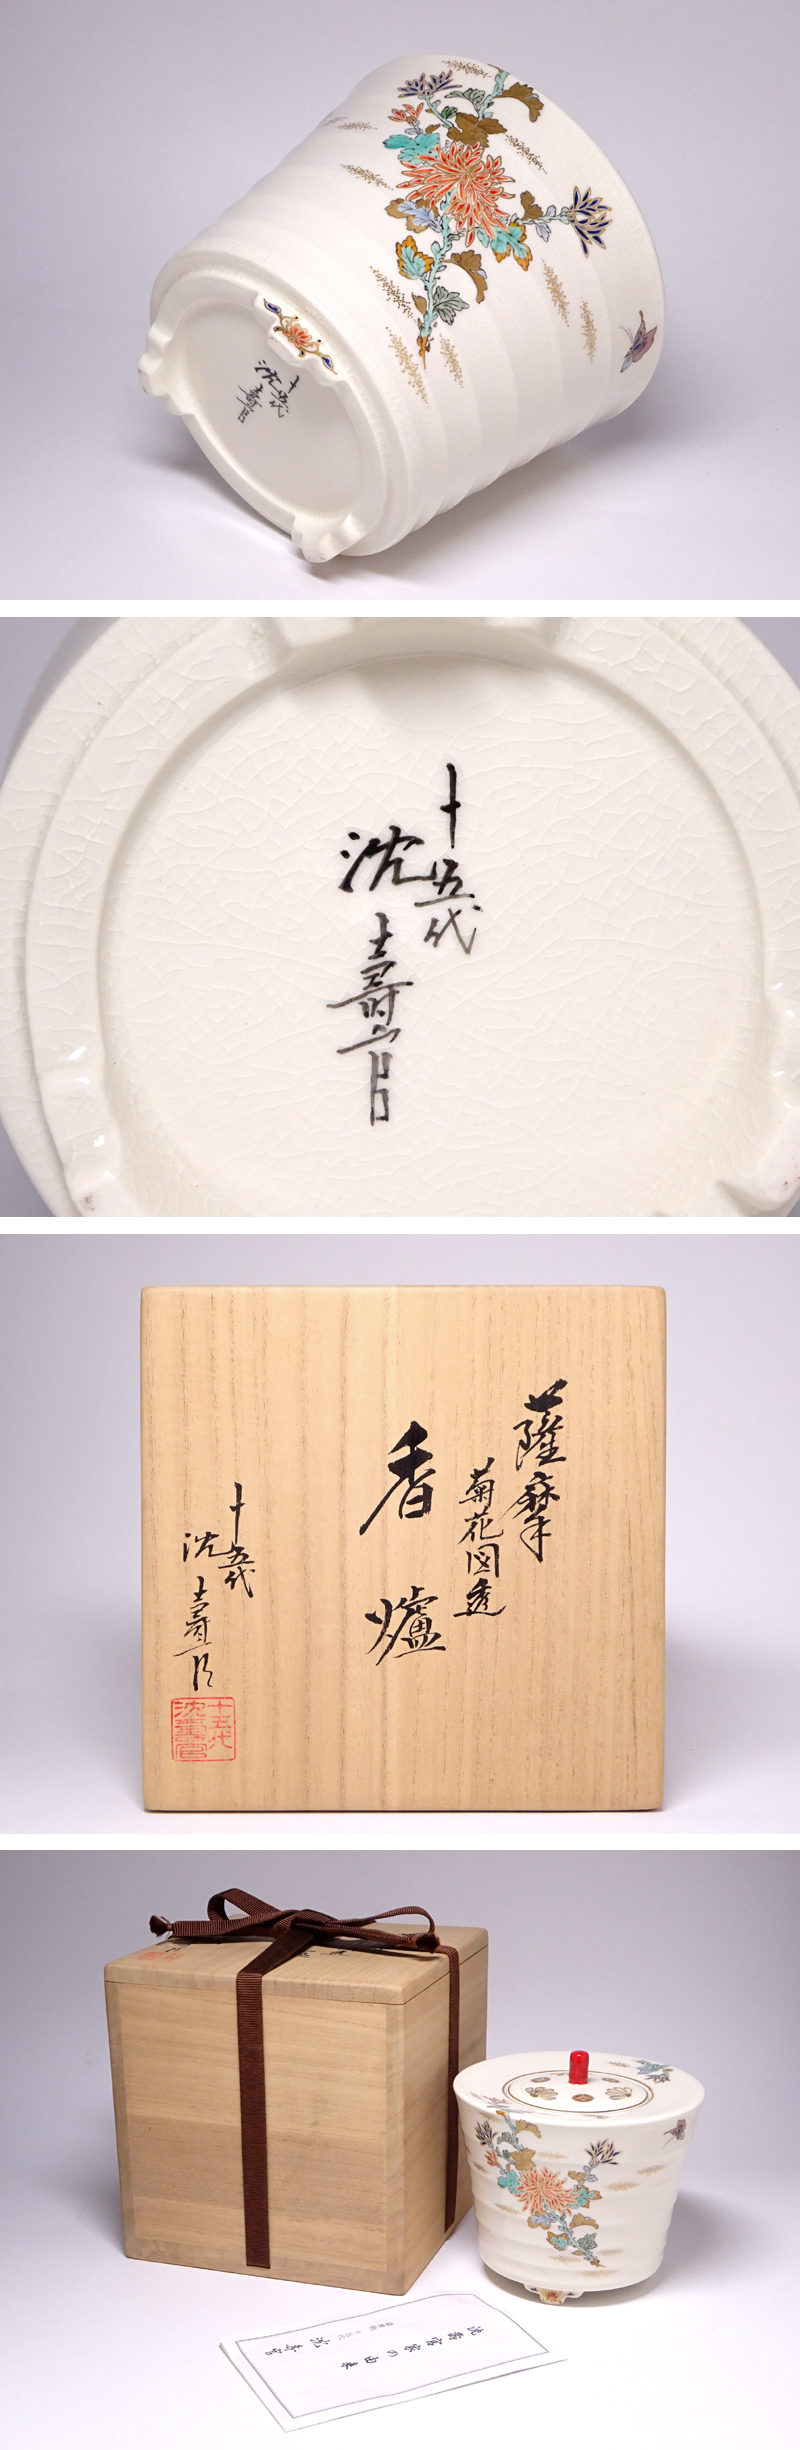 十五代
沈壽官
十五代
沈壽官
薩摩
菊花図透
香爐
十五代
沈壽官
十五代
沈壽官
沈壽官家の由来
十五代 沈壽官